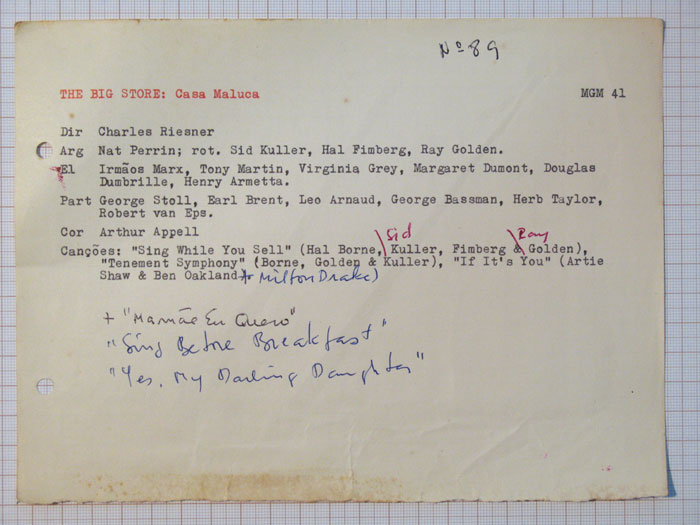 Nº 89
THE BIG STORE: Casa Maluca MGM 41
Dir Charles Riesner
Arg Nat Perrin; rot. Sid Kuller, Hal Fimberg, Ray Golden.
El Irmãos Marx, Tony Martin, Virginia Grey, Margaret Dumont, Douglas
Dumbrille, Henry Armetta.
Part George Stoll, Earl Brent, Leo Arnaud, George Bassman, Herb Taylor,
Robert van Eps.
Cor Arthur Appell
Sid Ray
Canções: "Sing While You Sell" (Hal Borne, Kuller, Fimberg & Golden),
"Tenement Symphony" (Borne, Golden & Kuller), "If It's You" (Artie
Shaw & Ben Oakland + Milton Drake)
+ "Mamãe Eu Quero"
"Sing Before Breakfast"
"Yes, My Darling Daughter"